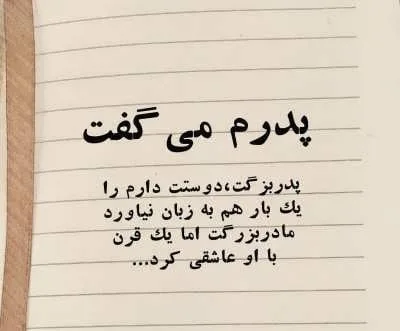 پدرم می گفت
پدربزگت،دوستت دارم را
یك بار هم به زبان نیاورد
مادربزرگت اما یك قرن
با او عاشقی كرد...